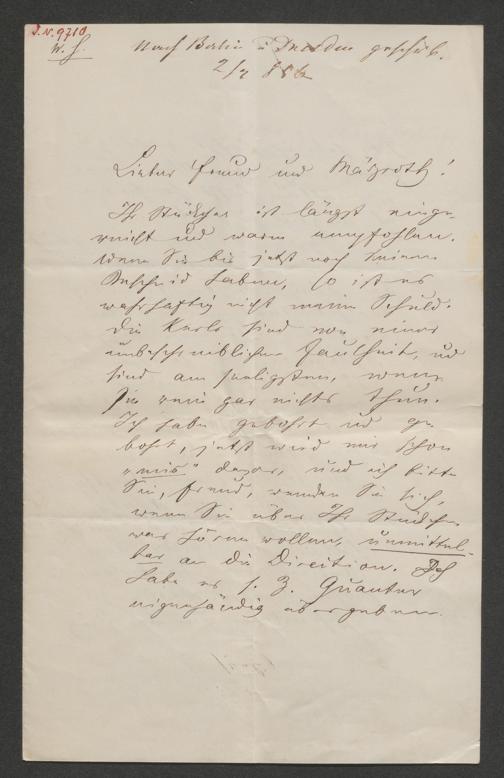 J. N. 9710
W. H. nach Berlin u Dresden geschrb.
2/2 886
Lieber Freund und Märzroth!
Ihr Stückchen ist längst einge-
reicht und warm empfohlen.
Wenn Sie bis jetzt noch keinen
Bescheid haben, so ist es
wahrhaftig nicht meine Schuld.
Die Kerls sind von einer
unbeschreiblichen Faulheit, und
sind am seeligsten, wenn
sie rein gar nichts thun.
Ich habe gebohrt und ge-
bohrt, jetzt wird mir schon
"mies" davor, und ich bitte
Sie, Freund, wenden Sie sich,
wenn Sie über Ihr Stückchen
was hören wollen, unmittel-
bar an die Direction.
habe es s. Z. Quanter
eigenhändig übergeben.